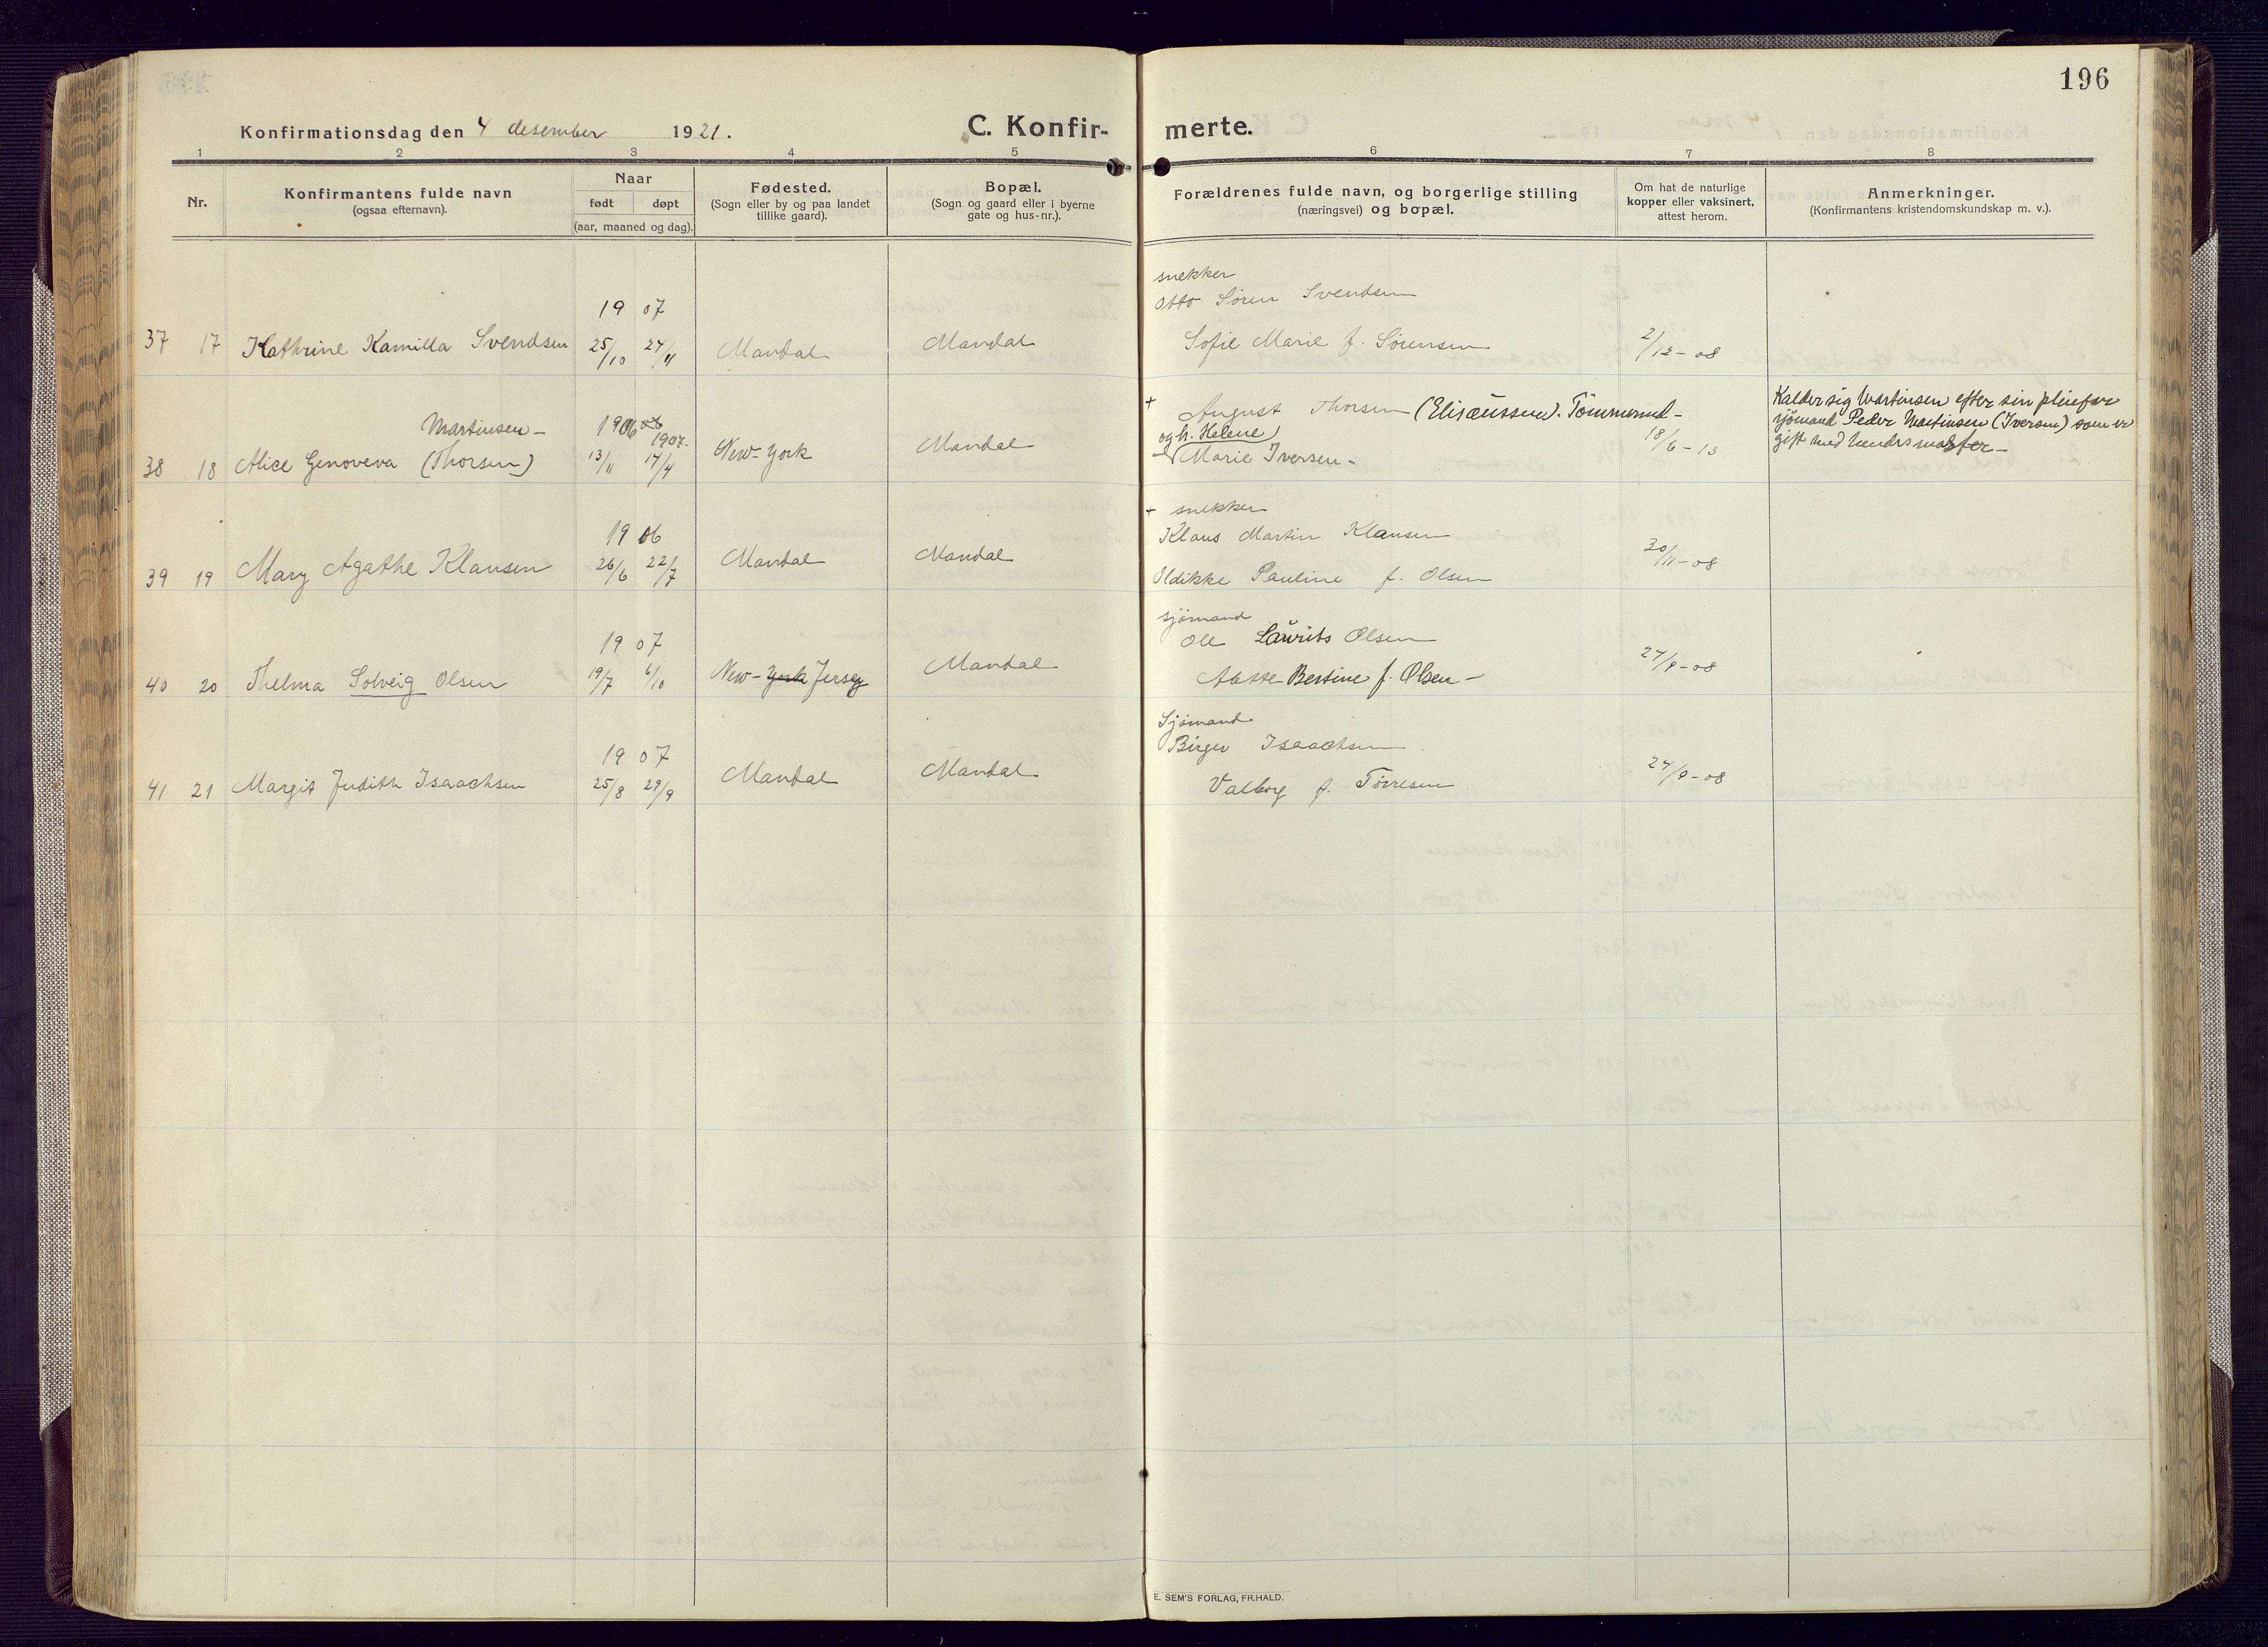 196
Konfirmationsdag den 4 desember 1921.
C. Konfirmerte.
1 2 3 4 5 6 7 8
Nr.
Konfirmantens fulde navn
(ogsaa efternavn).
Naar
født døpt
(aar, maaned og dag).
Fødested.
(Sogn eller by og paa landet
tillike gaard).
Bopæl.
(Sogn og gaard eller i byerne
gate og hus-nr.).
Forældrenes fulde navn, og borgerlige stilling
(næringsvei) og bopæl.
Om hat de naturlige
kopper eller vaksinert,
attest herom.
Anmerkninger.
(Konfirmantens kristendomskundskap m. v.).
snekker
Otto Sören Svendsen
19 07
37 17 Kathrine Kamilla Svendsen 25/10 24/11 Mandal Mandal Sofie Marie f. Sörensen 2/12-08
Martinsen- 1906 1907.
38 18 Alice Genoveva (Thorsen) 13/11 14/4 New-York Mandal
+ August Thorsen (Eliæussen). Tömmermd-
og h. Helene
Marie Iversen-
18/6-13
Kalder sig Martinsen efter sin pleiefar
sjömand Peder Martinsen (Iversen) som er
gift med hendes moster-
+ snekker
19 06 Klaus Martin Klausen
39 19 Mary Agathe Klausen 26/6 22/7 Mandal Mandal Oldikke Pauline f. Olsen 30/11-08
sjömand
19 07 Ole Laurits Olsen
40 20 Thelma Solveig Olsen 19/7 6/10 New-York Jersey Mandal Bertine f. Olsen- 24/9-08
Sjömand
19 07 Birger Isaachsen
41 21 Margit Judith Isaachsen 25/8 29/9 Mandal Mandal Valborg f. Törresen 24/9-08
E. SEM'S FORLAG, FR.HALD.